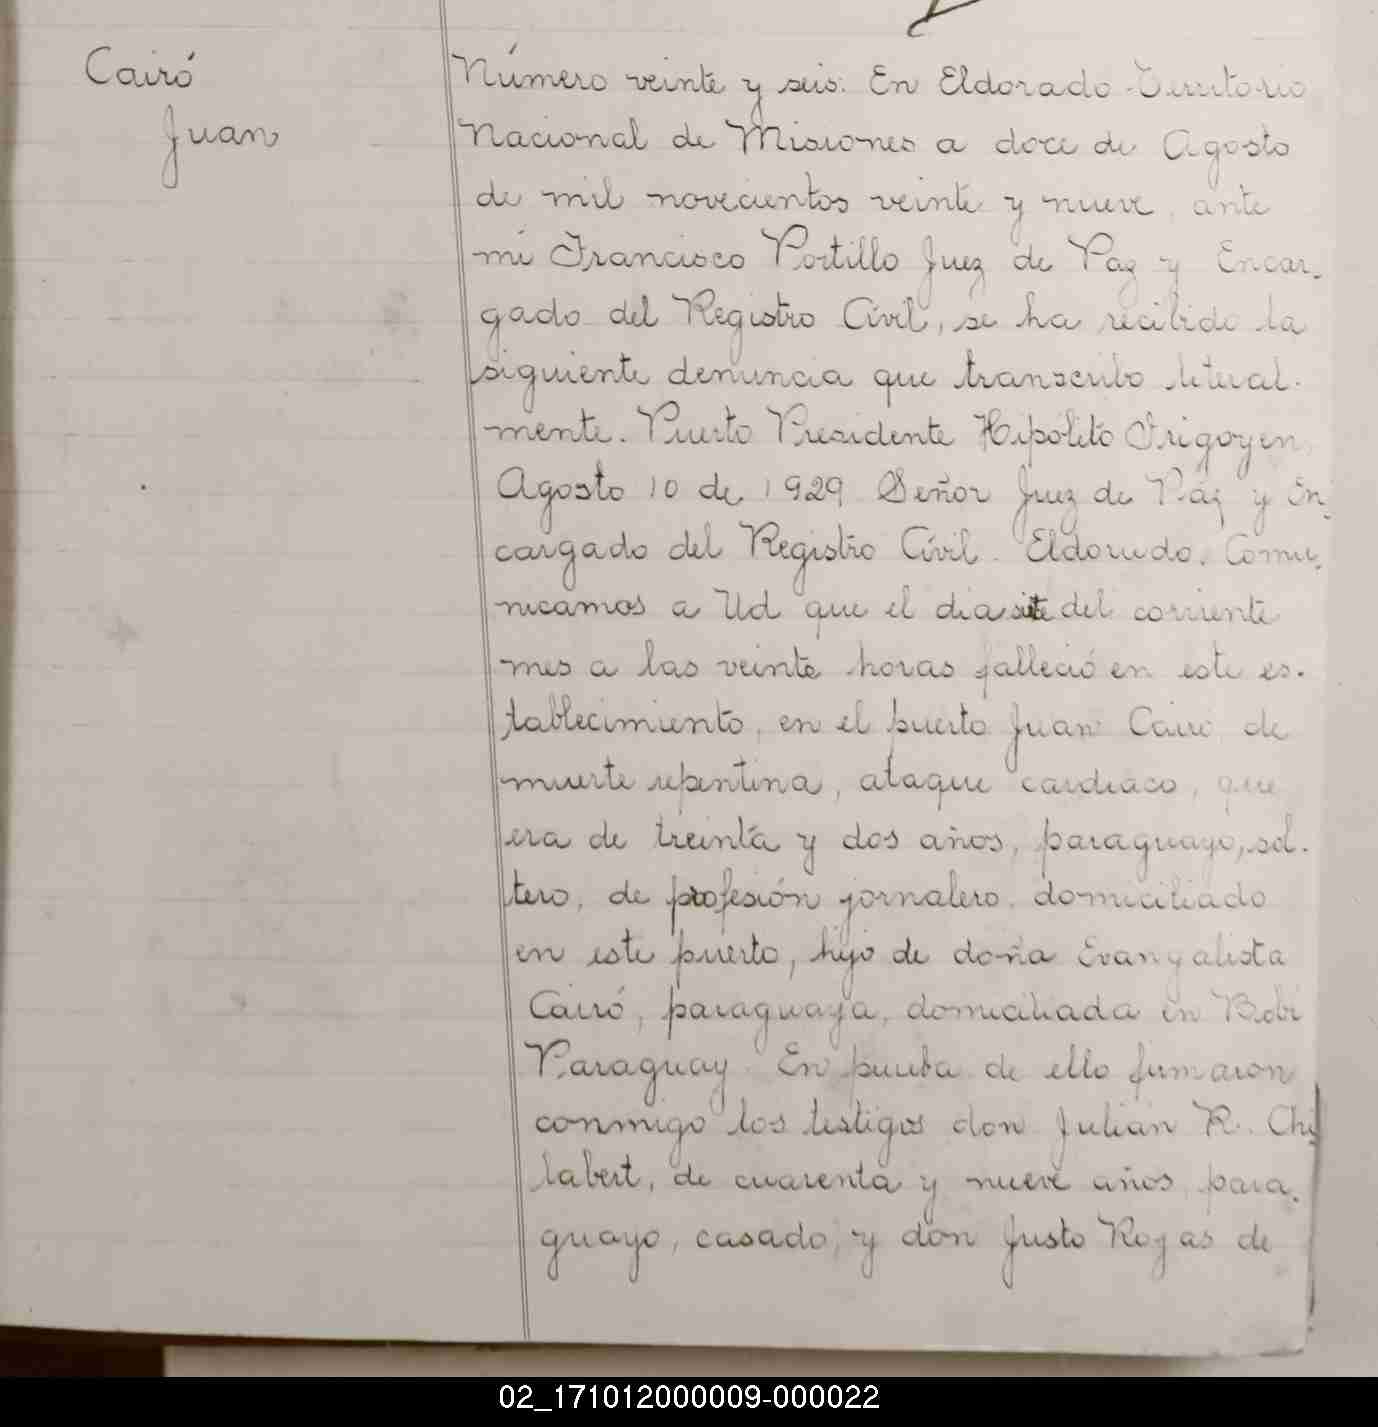 Cairó
Juan
Número veinte y seis: En Eldorado Territorio
Nacional de Misiones a doce de Agosto
de mil novecientos veinte y nueve, ante
mi Francisco Portillo Juez de Paz y Encar-
gado del Registro Civil, se ha recibido la
siguiente denuncia que transcribo literal-
mente. Puerto Presidente Hipólito Irigoyen
Agosto 10 de 1929 Señor Juez de Paz y En-
cargado del Registro Civil. Eldorado. Comu-
nicamos a Ud que el dia siete del corriente
mes a las veinte horas falleció en este es-
tablecimiento, en el puerto Juan Cairó, de
muerte repentina, ataque cardiaco, que
era de treinta y dos años, paraguayo, sol-
tero, de profesión jornalero, domiciliado
en este puerto, hijo de doña Evangalista
Cairó, paraguaya, domiciliada en Bobi
Paraguay. En prueba de ello firmaron
conmigo los testigos don Julián R. Chi-
labert, de cuarenta y nueve años, para-
guayo, casado, y don Justo Rojas de
02_171012000009-000022